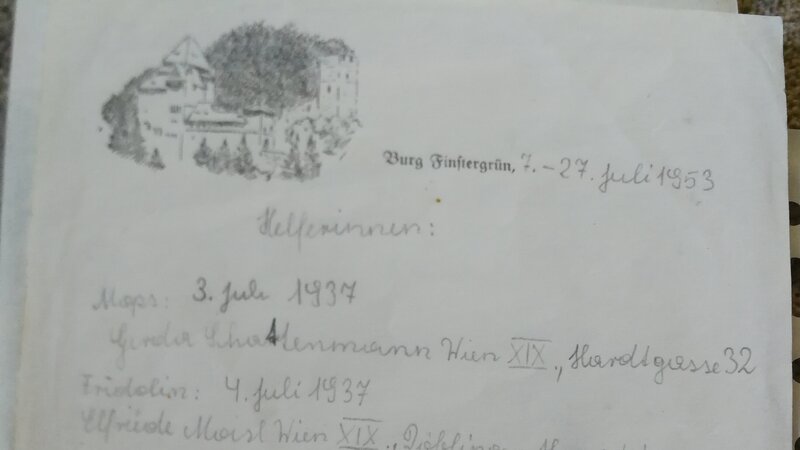 Burg Finstergrün, 7. – 27. Juli 1953
Helferinnen:
Mops: 3. Juli 1937
Gerda Schattenmann Wien XIX., Hardtgasse 32
Fridolin: 4. Juli 1937
Elfriede Maisl Wien XIX.,